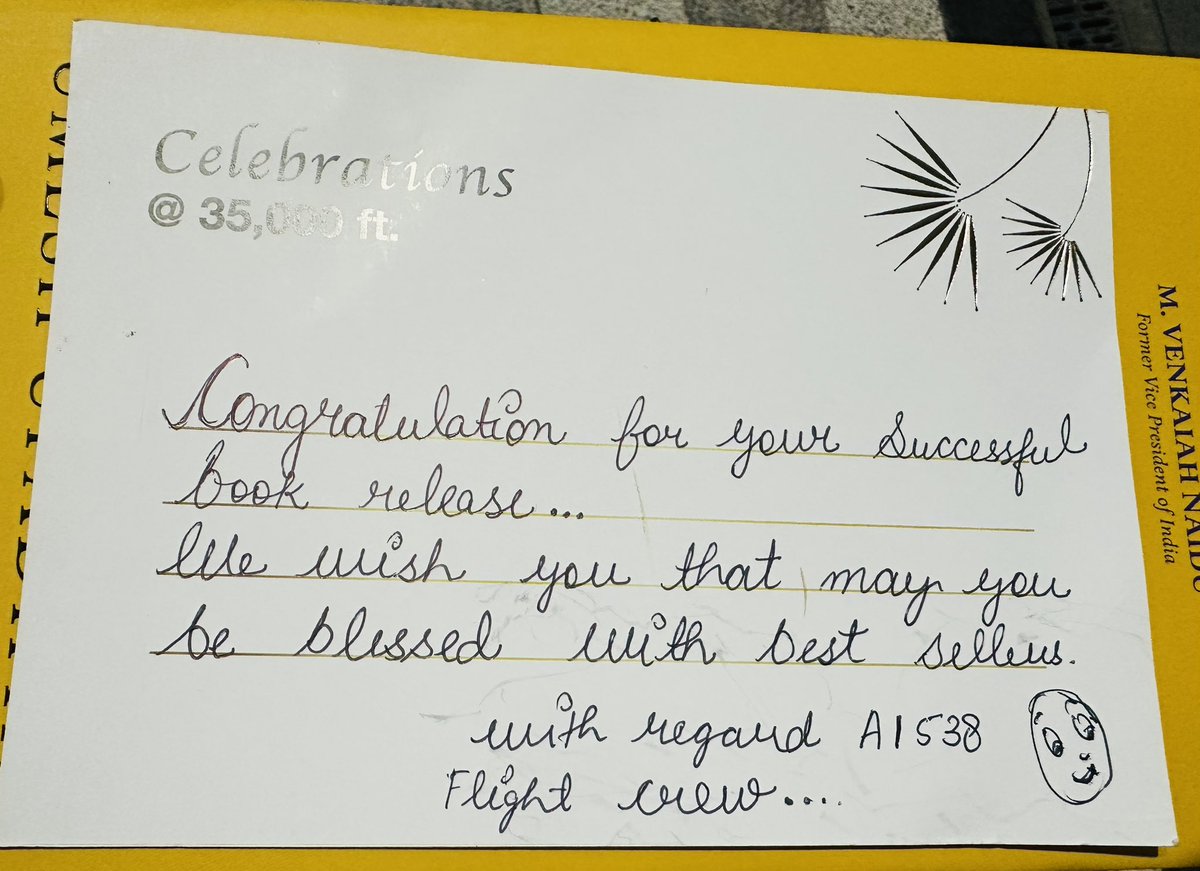 Celebrations
@ 35,000 ft.
Congratulation for your Successful
book release...
We wish you that may you
be blessed with best sellers.
with regard AI 538
Flight crew....
M. VENKAIAH NAIDU
Former Vice President of India